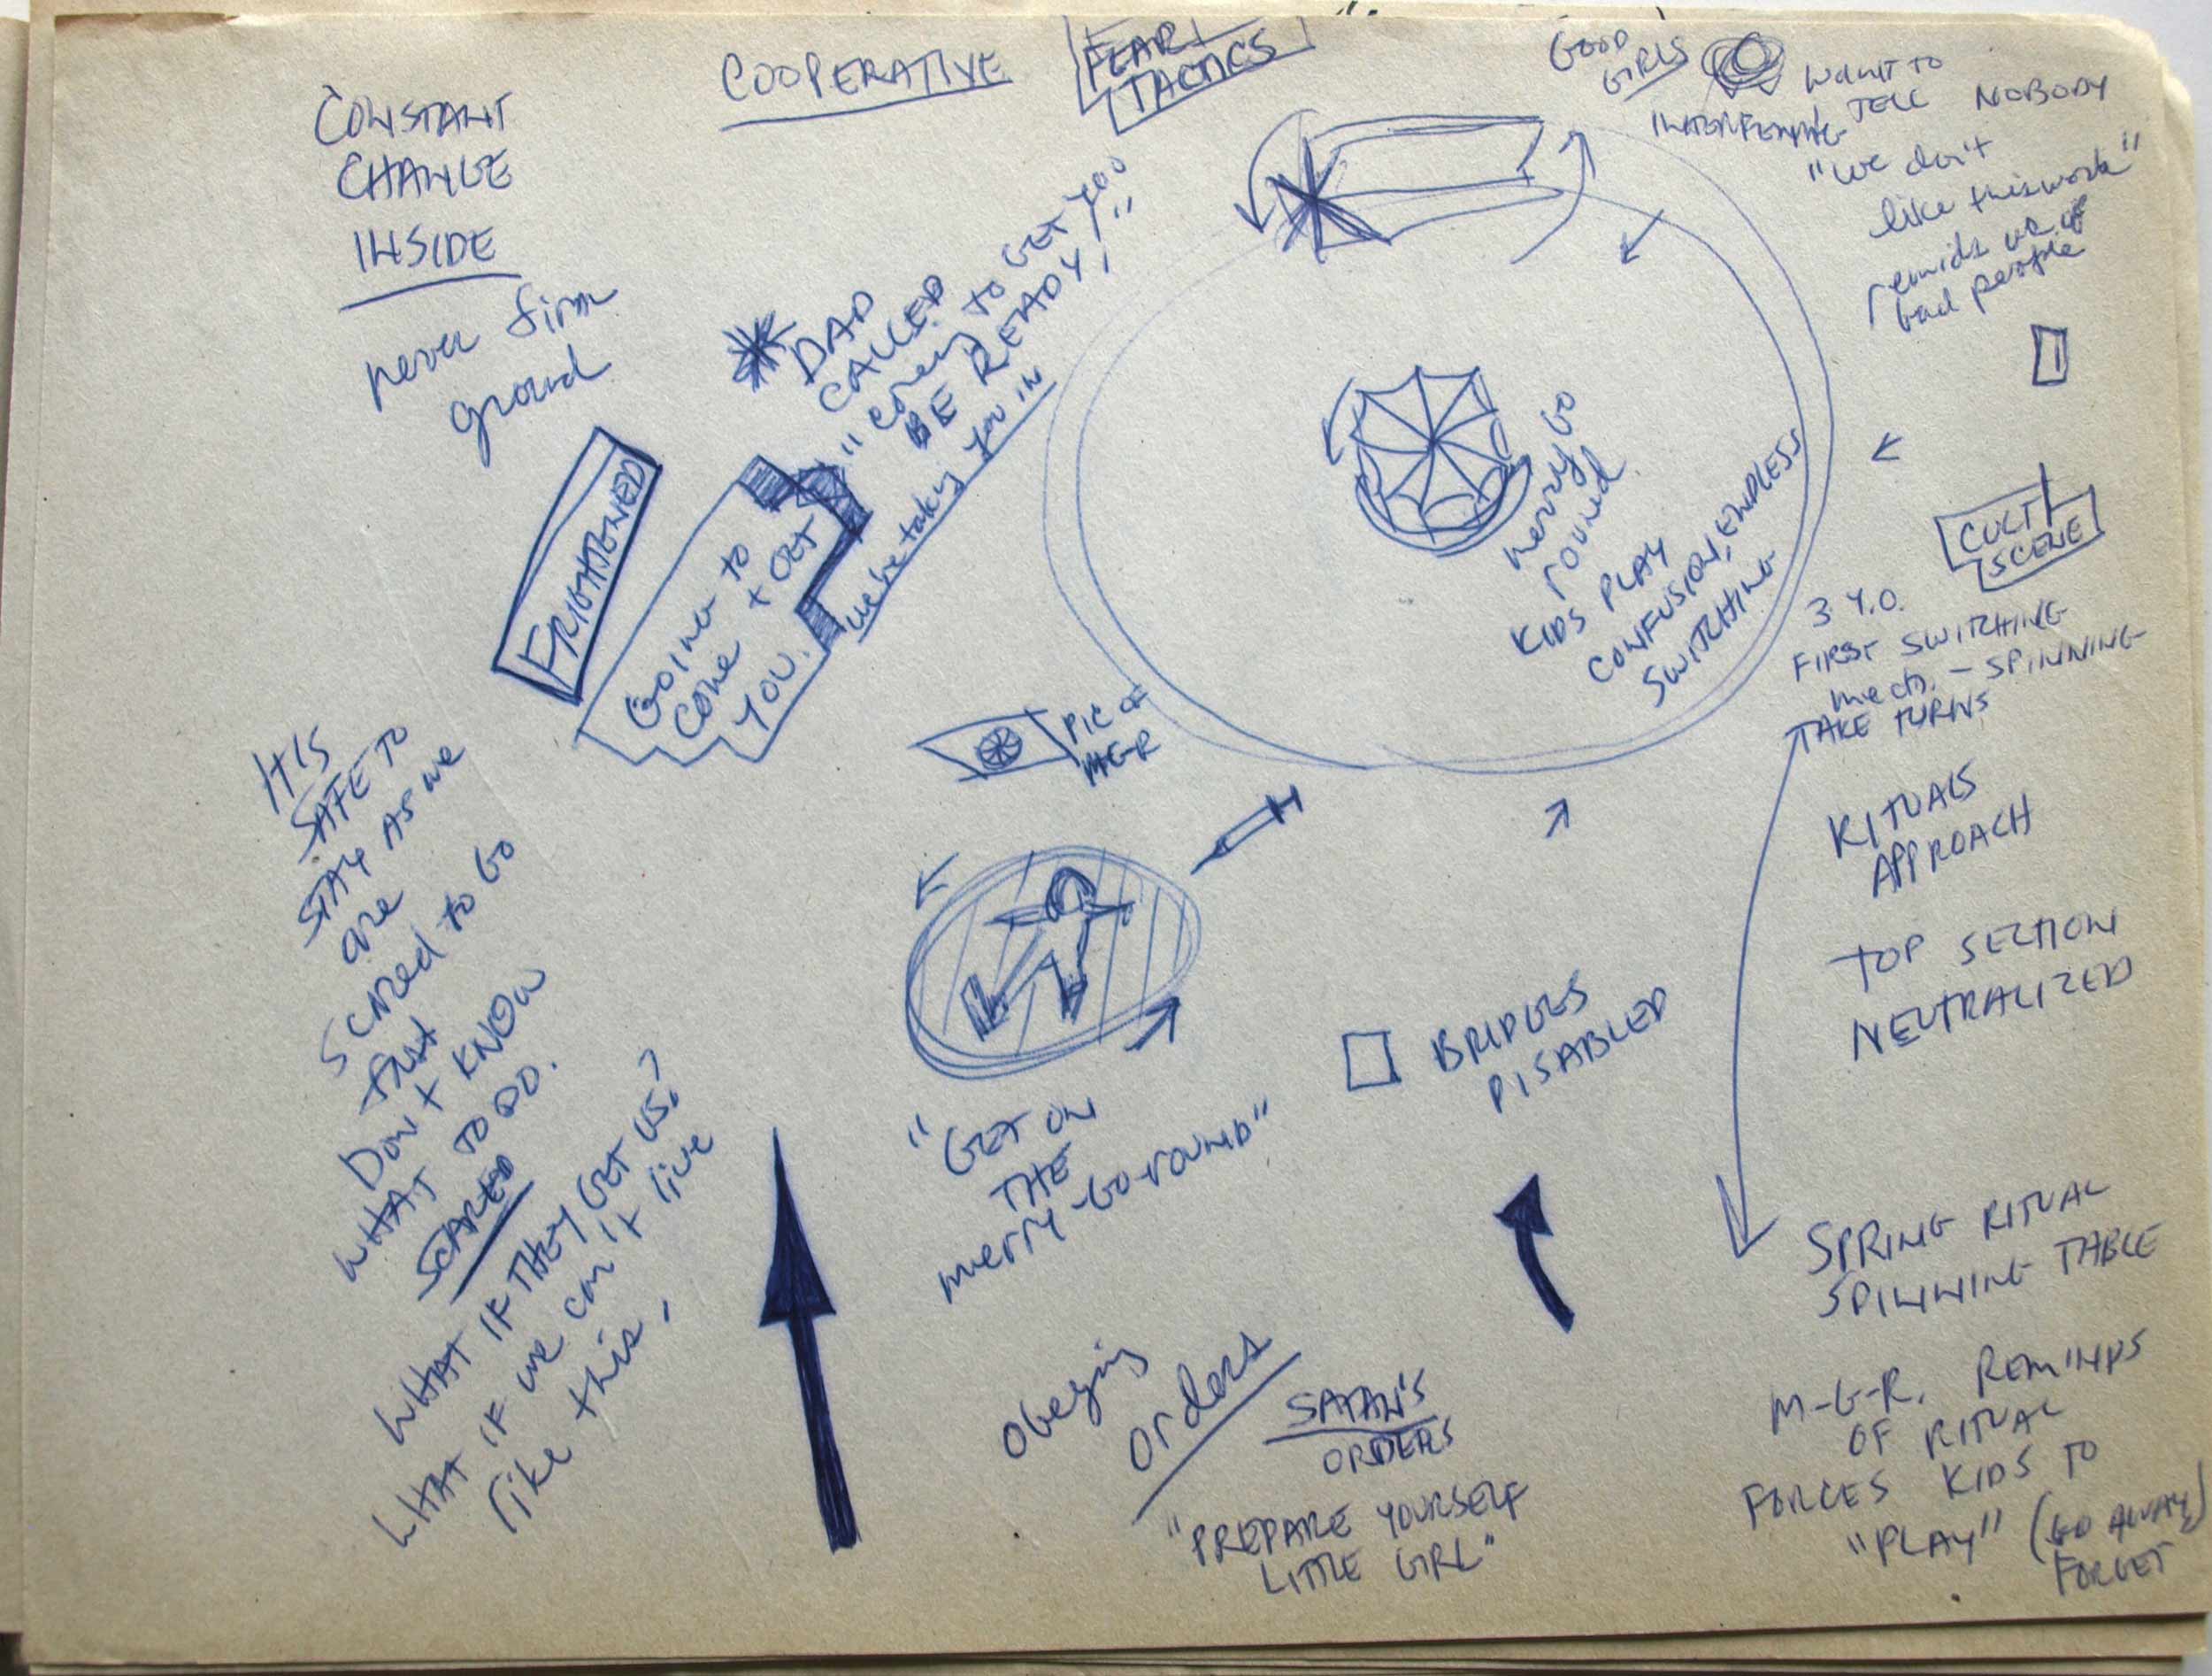 CONSTANT
CHANGE
INSIDE
never firm
ground
COOPERATIVE
FEAR
TACTICS
GOOD
GIRLS
WANT TO
TELL NOBODY
INTERFERING
"we don't
like this work"
reminds us of
bad people
* DAD
CALLED
"coming to GET YOU
BE READY!"
we're taking you in
FRIGHTENED
GOING to
COME + GET
YOU.
merry go
round.
KIDS PLAY
CONFUSION, ENDLESS
SWITCHING
CULT
SCENE
3 Y.O.
FIRST SWITCHING
mech. - SPINNING
TAKE TURNS
RITUALS
APPROACH
TOP SECTION
NEUTRALIZED
PIC OF
M-G-R
"GET ON
THE
merry-Go-round"
BRIDGES
DISABLED
SAFE TO
STAY AS we
are
SCARED to GO
Don't KNOW
WHAT TO DO.
SCARED
WHAT IF THEY GET US?
WHAT IF we can't live
like this,
obeying
orders
SATAN'S
ORDERS
"PREPARE YOURSELF
LITTLE GIRL"
SPRING RITUAL
SPINNING TABLE
M-G-R. REMINDS
OF RITUAL
FORCES KIDS TO
"PLAY" (GO AWAY)
FORGET